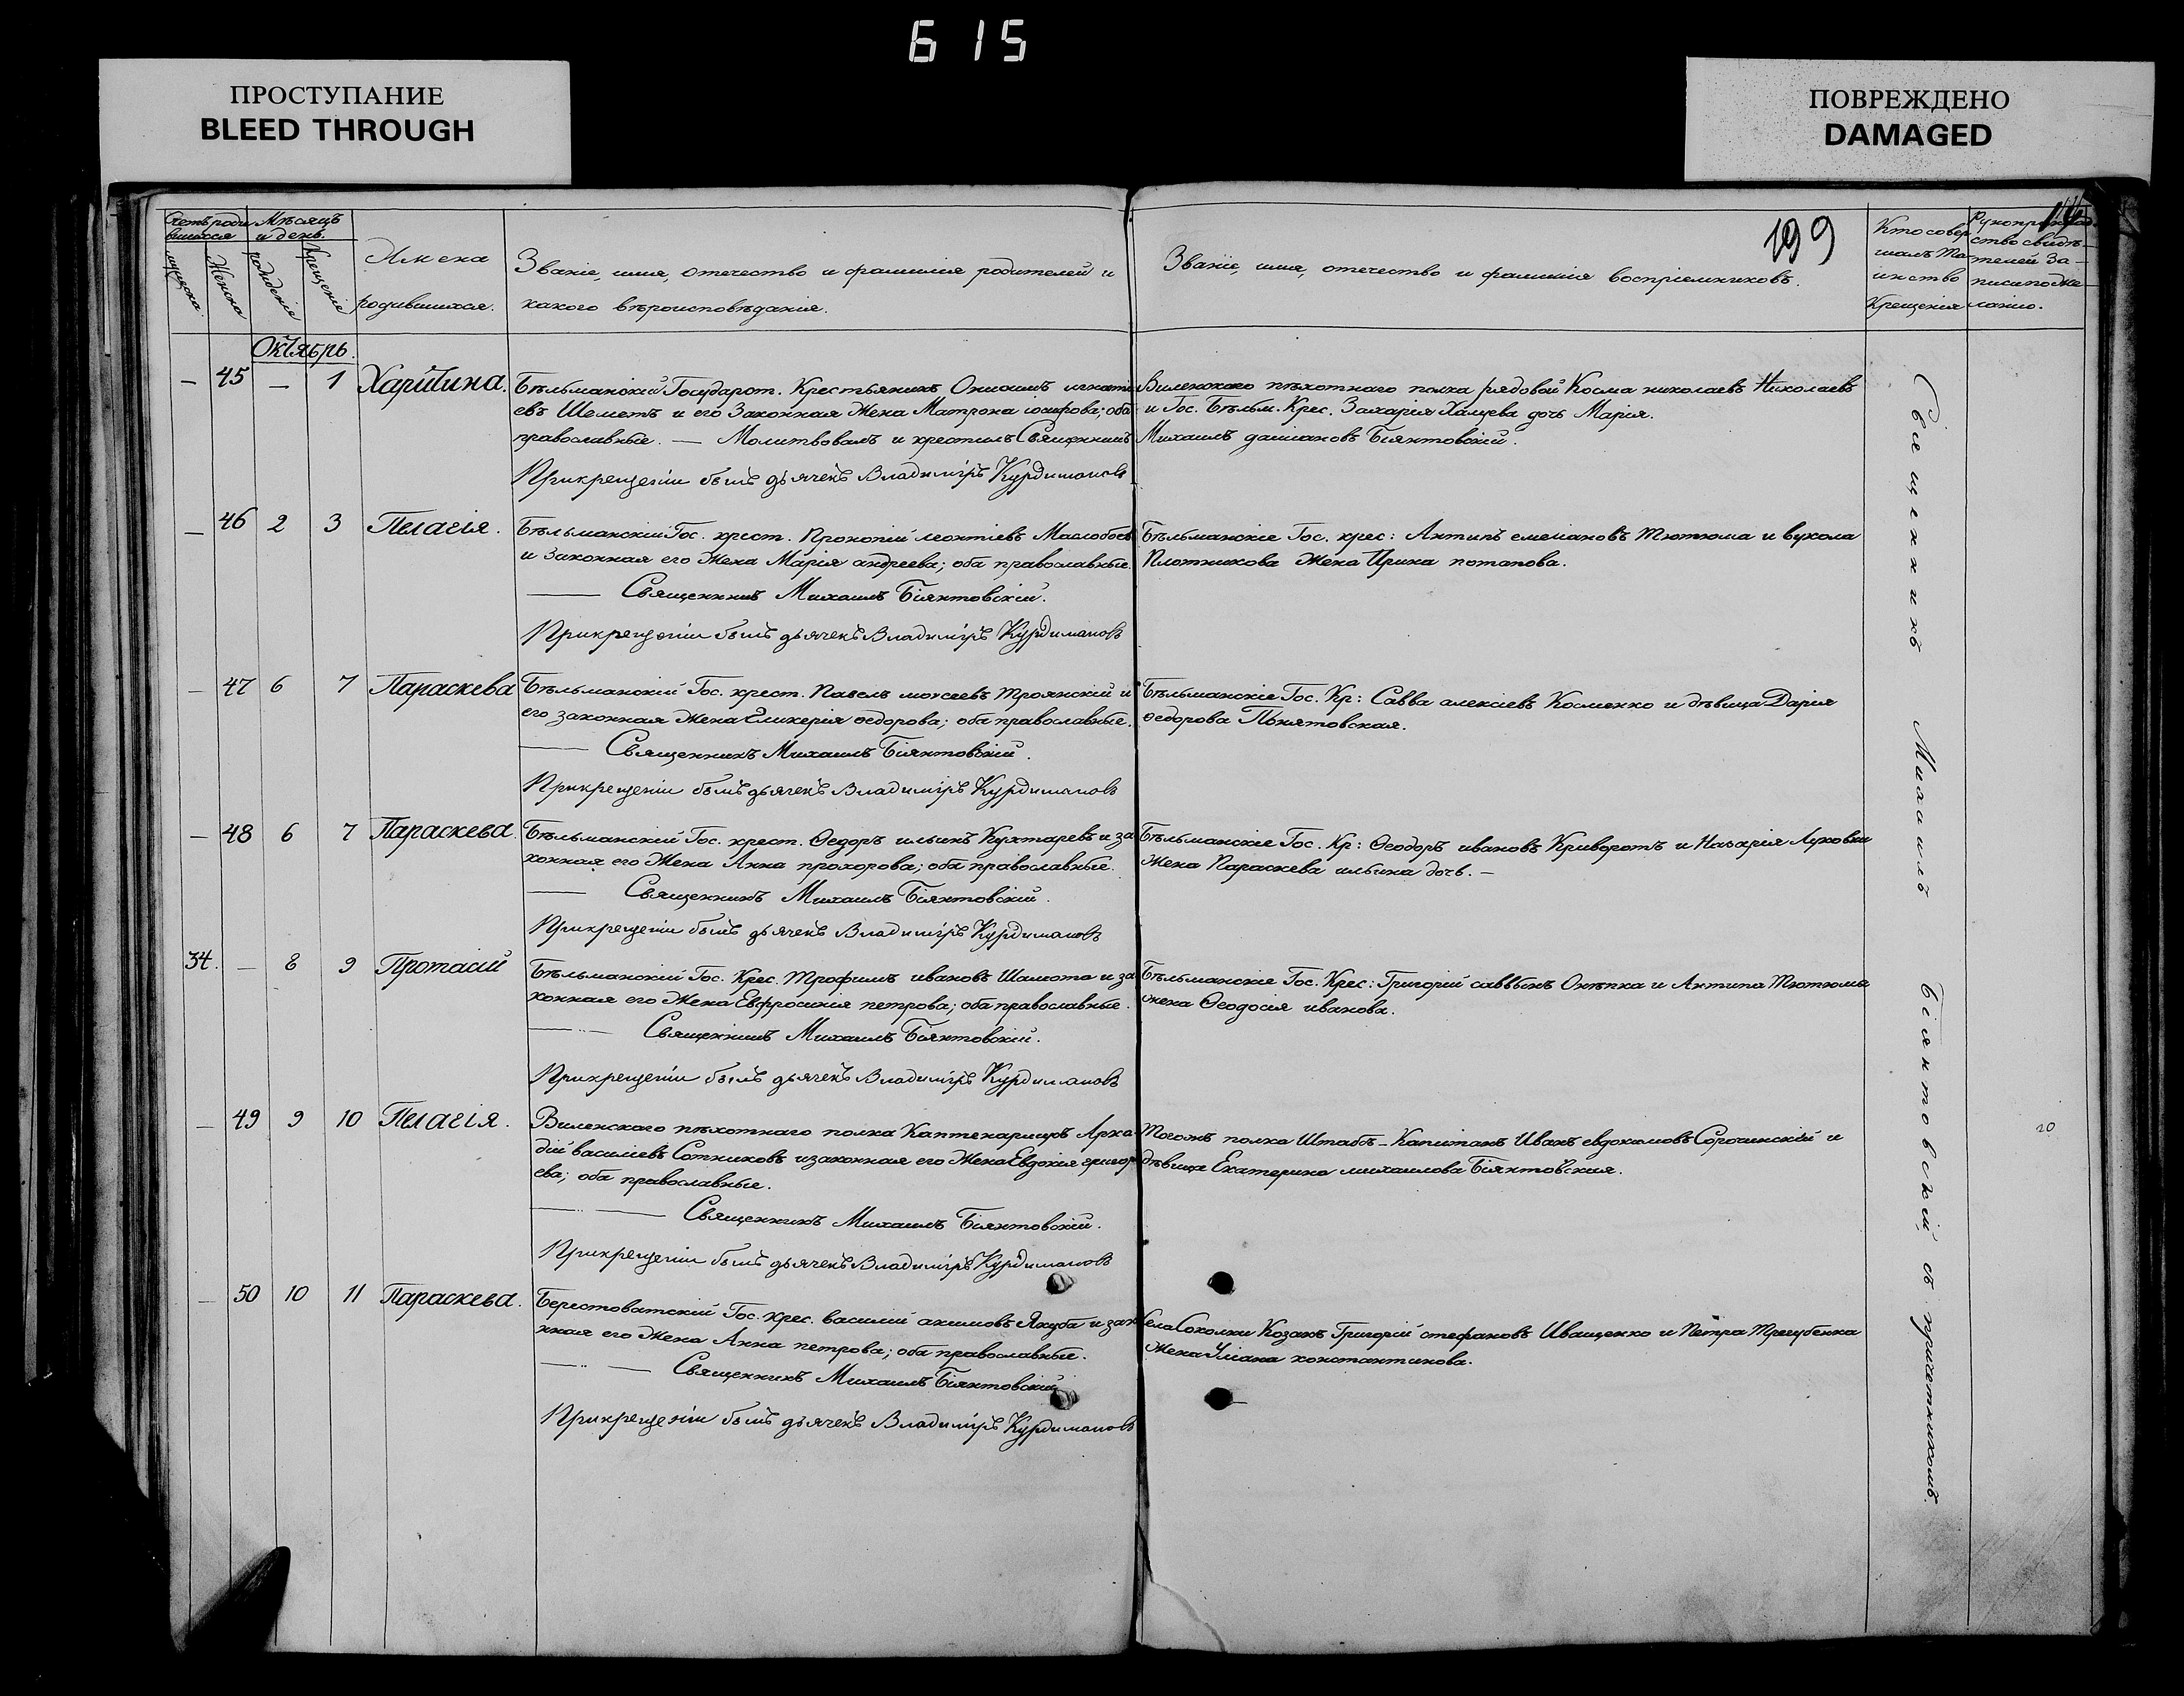 615
ПРОСТУПАНИЕ
BLEED THROUGH
ПОВРЕЖДЕНО
DAMAGED
199
Счетъ роди
вшихся
Мѣсяцъ
и день.
мужеска.
Женска
рожденія
Крещенія
Имена
родившихся.
Званіе, имя, отечество и фамилія родителей и
какого вѣроисповѣданія.
Званіе, имя, отечество и фамилія воспріемниковъ.
Кто совер
шалъ Та-
инство
Крещенія
ство свидѣ-
телей За-
писи по же-
ланію.
Октябрь.
— 45 — 1 Харитина. Бѣльманскій Государст. Крестьянинъ Онисимъ игнаті
евъ Шеметъ и его Законная Жена Матрона іосифова; оба
православные. — Молитвовалъ и крестилъ Священникъ
Прикрещеніи былъ дьячекъ Владиміръ Курдимановъ
Виленскаго пѣхотнаго полка рядовой Косма николаевъ Николаевъ
и Гос. Бѣльм. Крес. Захарія Халцева дочь Марія.
Михаилъ даміановъ Біянтовскій.
— 46 2 3 Пелагія. Бѣльманскій Гос. крест. Прокопій леонтіевъ Маслобоевъ
и Законная его Жена Марія андреева; оба православные.
— Священникъ Михаилъ Біянтовскій.
Прикрещеніи былъ дьячекъ Владиміръ Курдимановъ
Бѣльманскіе Гос. крес: Антипъ емеліановъ Тютюма и вукола
Плотникова Жена Ирина потапова.
— 47 6 7 Параскева Бѣльманскій Гос. крест. Павелъ моисеевъ Троянскій и
его законная Жена Гликерія ѳедорова; оба православные.
— Священникъ Михаилъ Біянтовскій.
Прикрещеніи былъ дьячекъ Владиміръ Курдимановъ
Бѣльманскіе Гос. Кр: Савва алексіевъ Косменко и дѣвица Дарія
ѳедорова Понятовская.
— 48 6 7 Параскева. Бѣльманскій Гос. крест. Ѳедоръ ильинъ Кухтаревъ и за
конная его Жена Анна прохорова; оба православные.
— Священникъ Михаилъ Біянтовскій.
Прикрещеніи былъ дьячекъ Владиміръ Курдимановъ
Бѣльманскіе Гос. Кр: Ѳеодоръ ивановъ Криворотъ и Назарія
Жена Параскева ильина дочь. —
34. — 8 9 Протасій Бѣльманскій Гос. Крес. Трофимъ ивановъ Шамота и за
конная его Жена Евфросинія петрова; оба православные.
— Священникъ Михаилъ Біянтовскій.
Прикрещеніи былъ дьячекъ Владиміръ Курдимановъ
Бѣльманскіе Гос. Крес: Григорій саввинъ Онѣпка и Антипа Тютюмы
жена Ѳеодосія иванова.
— 49 9 10 Пелагія. Виленскаго пѣхотнаго полка Каптенармусъ Арка
дій василіевъ Сотниковъ и законная его Жена Евдокія григорі
ева; оба православные.
— Священникъ Михаилъ Біянтовскій.
Прикрещеніи былъ дьячекъ Владиміръ Курдимановъ
Тогожъ полка Штабсъ-Капитанъ Иванъ евдокимовъ Сорочинскій и
дѣвица Екатерина михаилова Біянтовская.
20
— 50 10 11 Параскева. Берестоватскій Гос. крес. василій акимовъ Якуба и зако
нная его Жена Анна петрова; оба православные.
— Священникъ Михаилъ Біянтовскій
Прикрещеніи былъ дьячекъ Владиміръ Курдимановъ
села Соколки Козакъ Григорій стефановъ Иващенко и Петра Трегубенка
Жена Уліана константинова.
Священникъ Михаилъ Біянтовскій съ причетникомъ.